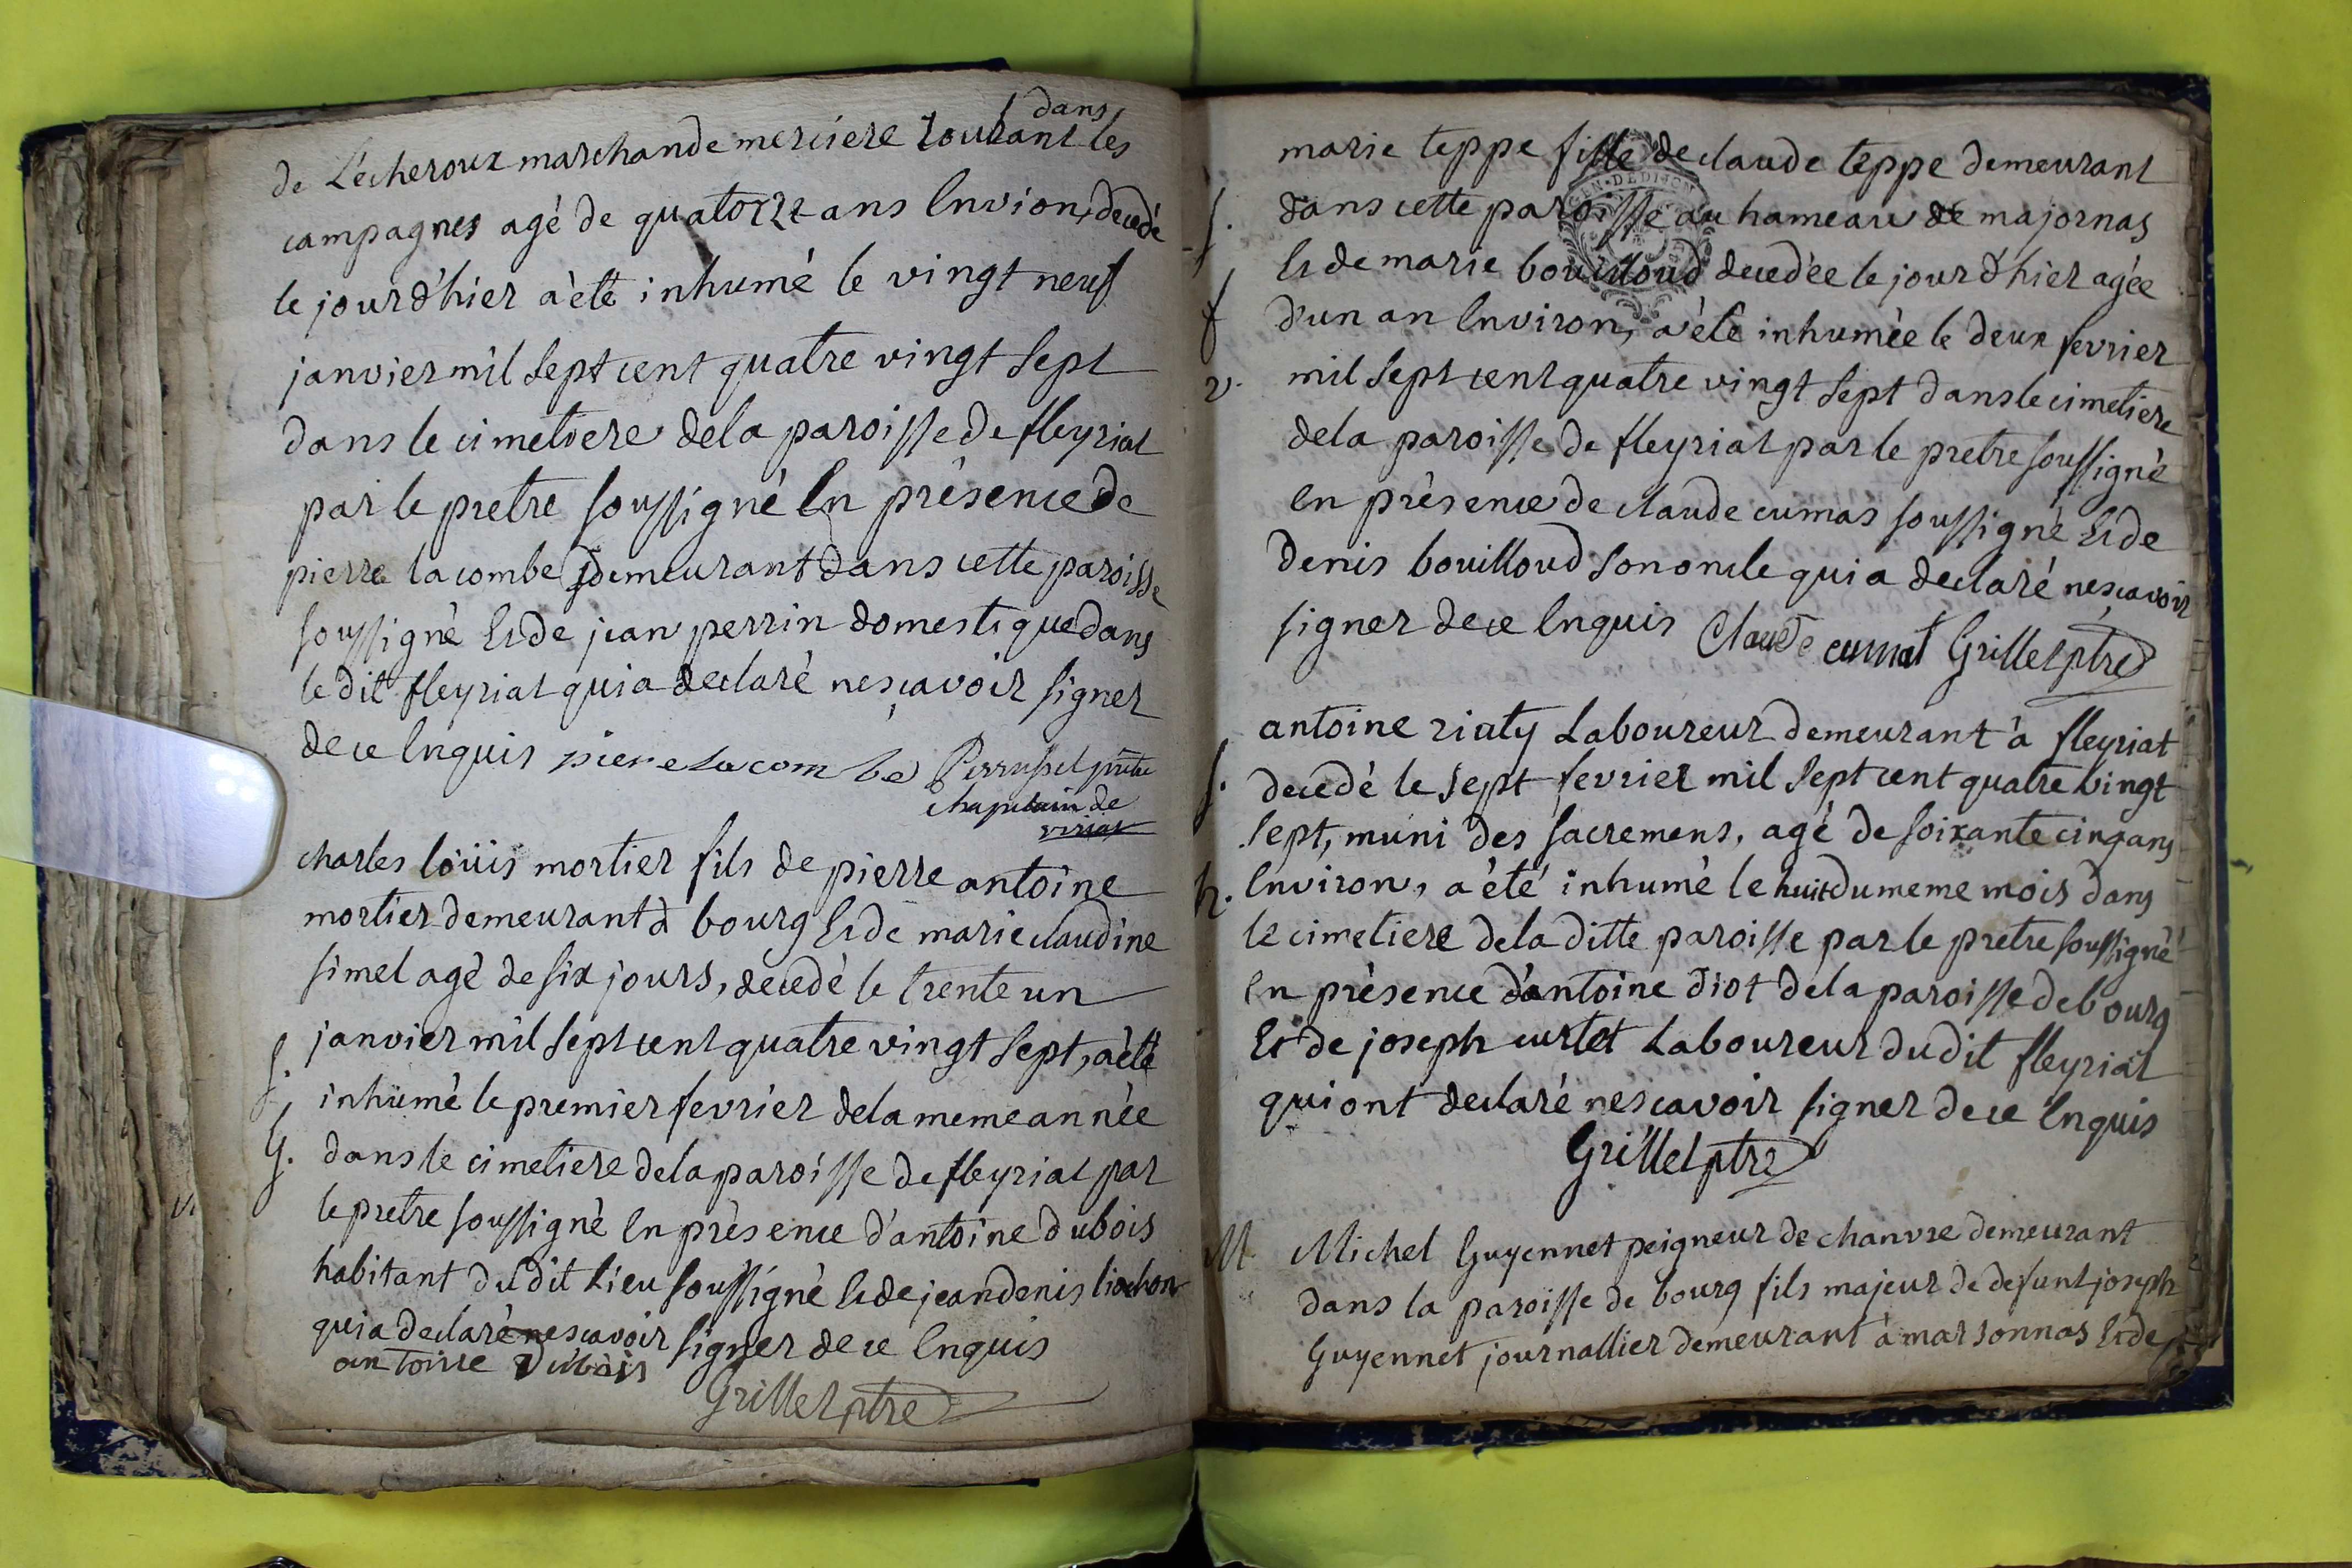 dans
de Lécheroux marchande merciere roulant les
campagnes agé de quatorze ans Environ, decedé
le jour d'hier a été inhumé le vingt neuf
janvier mil Sept cent quatre vingt Sept
dans le cimetiere dela paroisse de fleyriat
par le pretre soussigné En présence de
pierre lacombe demeurant dans cette paroisse
soussigné Et de jean perrin domestique dans
le dit fleyriat qui a declaré ne sçavoir signer
de ce Enquis piere Lacombe Perrussel prêtre
chapelain de
viriat
charles loüis mortier fils de pierre antoine
mortier demeurant à bourg Et de marie claudine
simel agé de six jours, decedé le trente un
janvier mil Sept cent quatre vingt Sept, a été
inhumé le premier fevrier dela meme année
G. dans le cimetiere dela paroisse de fleyriat par
le pretre soussigné En présence d'antoine dubois
habitant du dit Lieu soussigné Et de jean denis
qui a declaré ne scavoir signer de ce Enquis
antoine Dubois
Grillet ptre
marie teppe fille de claude teppe demeurant
f. dans cette paroisse au hameau de majornas
Et de marie bouilloud decedée le jour d'hier agée
d'un an Environ, a été inhumée le deux fevrier
v. mil Sept cent quatre vingt Sept dans le cimetiere
dela paroisse de fleyriat par le pretre soussigné
En présence de claude cumas soussigné Et de
Denis bouilloud Son oncle qui a declaré ne sçavoir
signer de ce Enquis Claude cumat Grillet ptre
antoine riaty Laboureur demeurant à fleyriat
f. decedé le Sept fevrier mil Sept cent quatre vingt
Sept, muni des sacremens, agé de soixante cinq ans
h. Environ, a été inhumé le huit du meme mois dans
le cimetiere dela ditte paroisse par le pretre soussigné
En présence d'antoine diot dela paroisse de bourg
Et de joseph curtet Laboureur du dit fleyriat
qui ont declaré ne scavoir signer de ce Enquis
Grillet ptre
M Michel Guyennet peigneur de chanvre demeurant
dans la paroisse de bourg fils majeur de defunt joseph
Guyennet journallier demeurant à marsonnas Et de